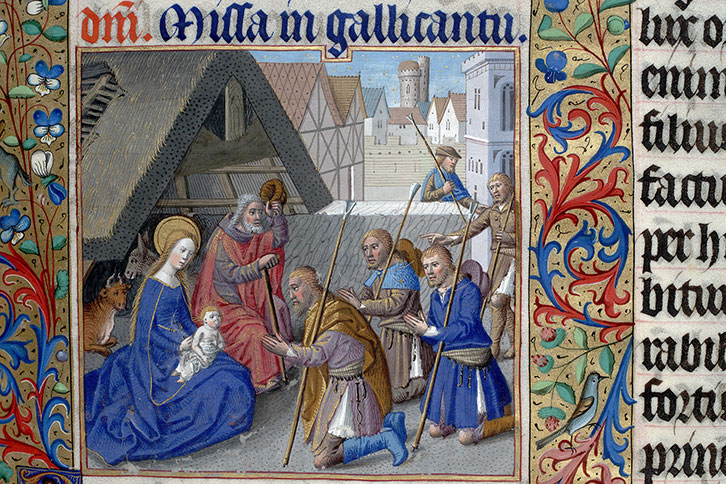 dm̄. Missa in gallicantu.
lux o
enim
filiu
factu
per hu
bitu
rabil
forti
prin